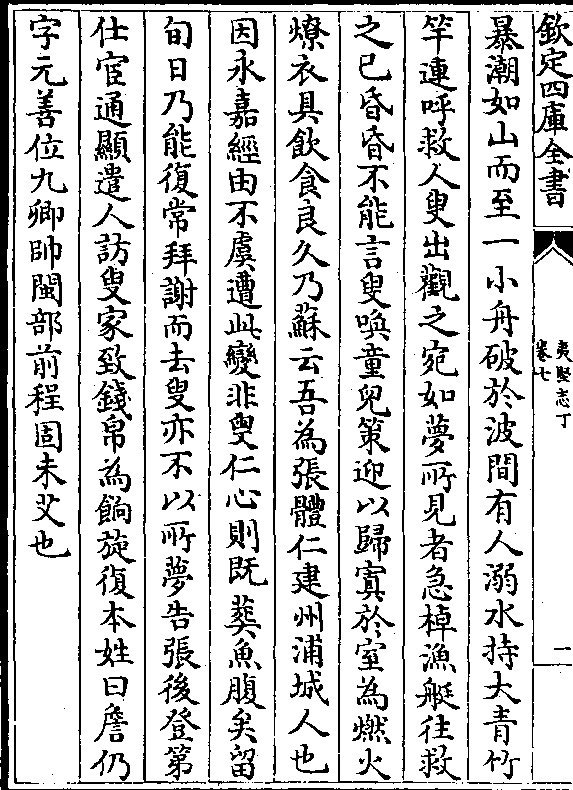 欽定四庫全書
夷堅志丁
卷七
一
暴潮如山而至一小舟破於波間有人溺水持大青竹
竿連呼救人叟出觀之宛如夢所見者急棹漁艇往救
之已昏昏不能言叟喚童兒策迎以歸寘於室為燃火
燎衣具飲食良久乃蘇云吾為張體仁建州浦城人也
因永嘉經由不虞遭此變非叟仁心則既葬魚腹矣留
旬日乃能復常拜謝而去叟亦不以所夢告張後登第
仕宦通顯遣人訪叟家致錢帛為餉旋復本姓曰詹仍
字元善位九卿帥閩部前程固未艾也